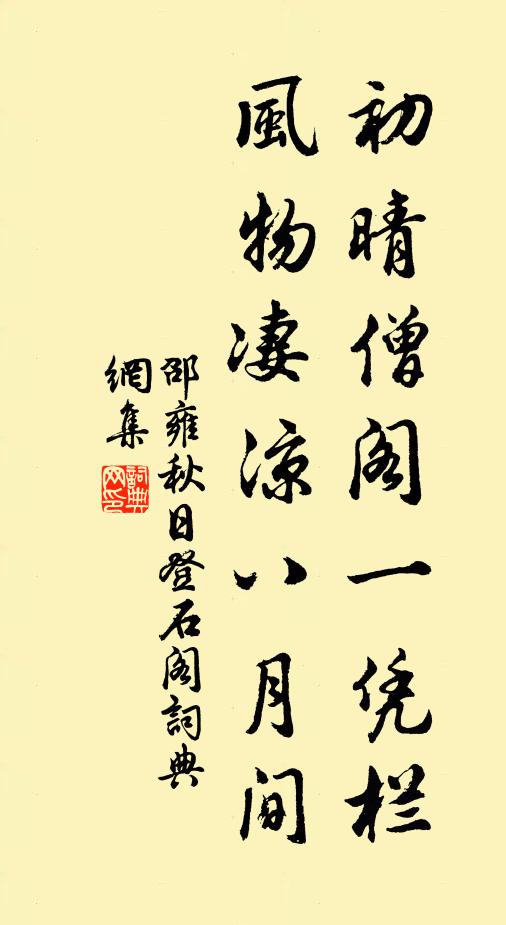 初晴僧阁一凭栏
風物凄凉八月间
邵雍秋日登石阁詞典
網集
詞典
网印